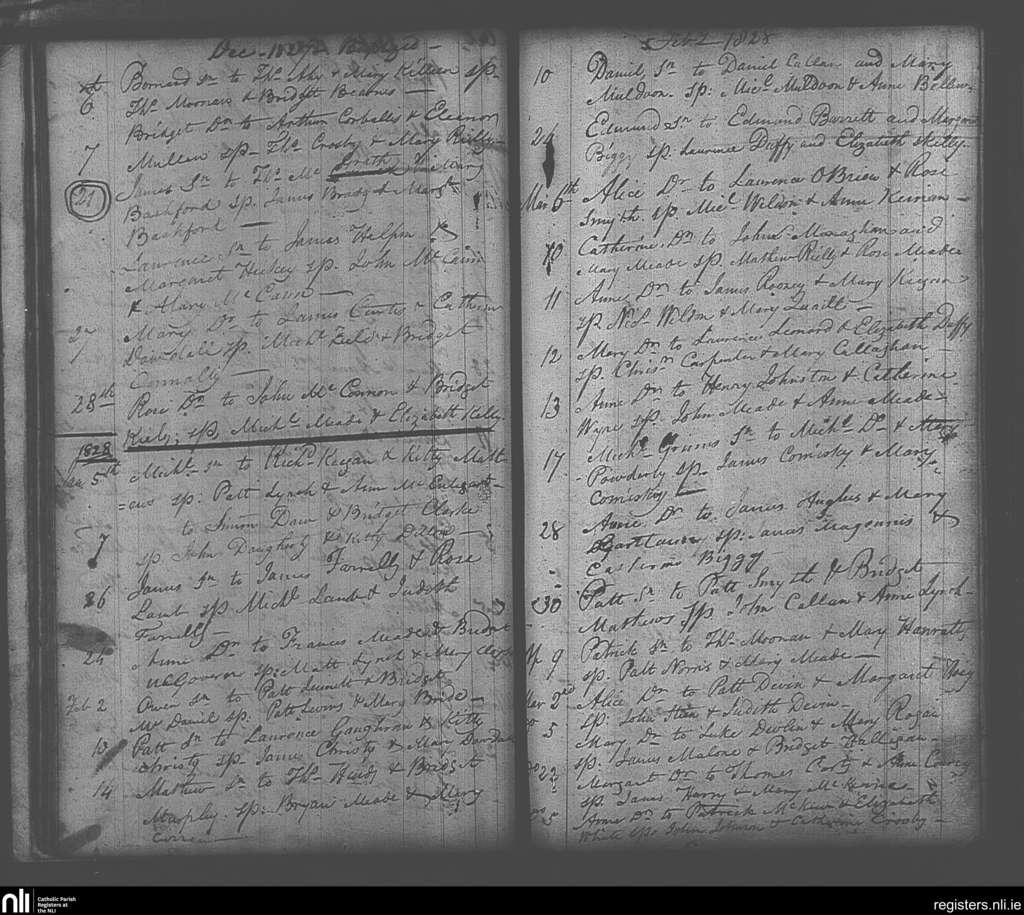 Dec 1827 Baptized
6 Bernard Sn to Ths Ahy & Mary Killean sp.
Ths Moonan & Bridget Bearns
Bridget Dr to Arthur Corballis & Eleanor
7 Mullen sp Ths Crosby & Mary Reilly
21 James Sn to Ths Mc & Mary
Bashford sp. James Brady & Margt
Bashford
Lawrence Sn to James Halpin &
Margaret Hickey sp. John Mc Cann
& Mary Mc Cann
27 Mary Dr to James Curtis & Catherine
Dowdall sp. Michl Field & Bridget
Connolly
28th Rose Dr to John Mc Connon & Bridget
Kiely; sp. Michl Meade & Elizabeth Kelly
1828
5th Michl Sn to Richd Keegan & Kitty Matt=
=ews sp: Patt Lynch & Ann Mc
to Simon Daw & Bridget Clarke
7 sp John Daugherty & Kitty Dillon
James Sn to James Farrelly & Rose
26 Lamb sp Michl Lamb & Judith
Farrelly
24 Anne Dr to Francis Meade & Bridget
McGovern sp: Matt Lynch & Mary
Feb 2 Owen Sn to Patt & Bridget
Mc Daniel sp: Patt & Mary Bride
13 Patt Sn to Lawrence Gaughran & Kitty
Christy sp James Christy & Mary
14 Mathew Sn to Ths & Bridget
Murphy. sp: Bryan Meade & Mary
Feb 1828
10 Daniel, Sn to Daniel Callan and Mary
Muldoon. sp: Micl Muldoon & Anne Bellew
24 Edmund Sn to Edmund Barrett and Margt
Biggy sp. Laurence Duffy and Elizabeth Skelly
Mar 6th Alice Dr to Laurence OBrien & Rose
Smyth. sp. Micl Weldon & Anne Keirnan
10 Catherine Dr to John Monaghan and
Mary Meade sp. Mathew Reilly & Rose Meade
11 Anne Dr to James Rooney & Mary
sp. Nils Weldon & Mary Quaile
12 Mary Dr to Laurence Leonard & Elizabeth Duffy
sp. Chrisr Carpenter & Mary Callaghan
13 Anne Dr to Henry Johnston & Catherine
sp. John Meade & Anne Meade
17 Michl Sn to Michl Do & Mary
Powderly sp. James Comiskey & Mary
Comiskey
28 Anne Dr to James Hughes & Mary
sp. James &
Biggy
30 Patt Sn to Patt Smyth & Bridget
Mathews sp. John Callan & Anne Lynch
9 Patrick Sn to Ths Moonan & Mary Hanratty
sp. Patt Norris & Mary Meade
Mar 2nd Alice Dr to Patt Devin & Margaret
sp. John & Judith Devin
5 Mary Dr to Luke Devlin & Mary Rogan
sp. James Malone & Bridget Halligan
22 Margaret Dr to Thomas & Anne
sp. James Harry & Mary
5 Anne Dr to Patrick & Elizabeth
White sp. John Johnson & Catherine Crosby
nli
Catholic Parish
Registers at
the NLI
registers.nli.ie